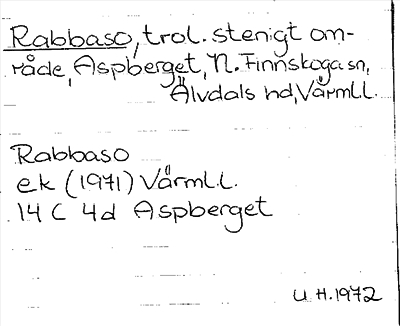 Rabbaso, trol. stenigt om-
råde, Aspberget, N. Finnskoga sn,
Älvdals hd, Värml.l.
Rabbaso
ek (1971) Värml.l.
14 C 4d Aspberget
U.H. 1972